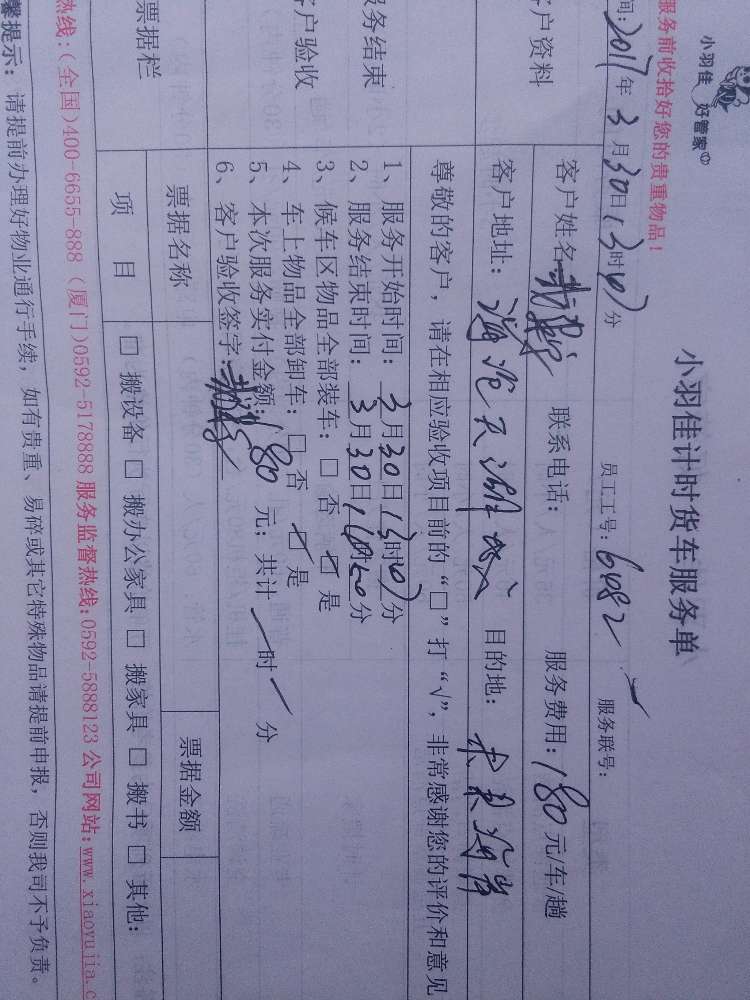 小羽佳
好管家
小羽佳计时货车服务单
服务前收拾好您的贵重物品！
员工工号：6482
服务联号：
间：2017年3月30日13时 分
客户资料
客户姓名
联系电话：
服务费用：180元/车/趟
客户地址：
目的地：
尊敬的客户，请在相应验收项目前的“□”打“√”，非常感谢您的评价和意见
服务结束
客户验收
1、服务开始时间：3月30日13时 分
2、服务结束时间：3月30日 时 分
3、候车区物品全部装车：□ 否 ☑ 是
4、车上物品全部卸车：□ 否 ☑ 是
5、本次服务实付金额：180元；共计 / 时 / 分
6、客户验收签字：
票据栏
票据名称
票据金额
项 目
□ 搬设备 □ 搬办公家具 □ 搬家具 □ 搬书 □ 其他：
热线：(全国)400-6655-888 (厦门)0592-5178888 服务监督热线：0592-5888123 公司网站：www.xiaoyujia.c
馨提示：请提前办理好物业通行手续，如有贵重、易碎或其它特殊物品请提前申报，否则我司不予负责。